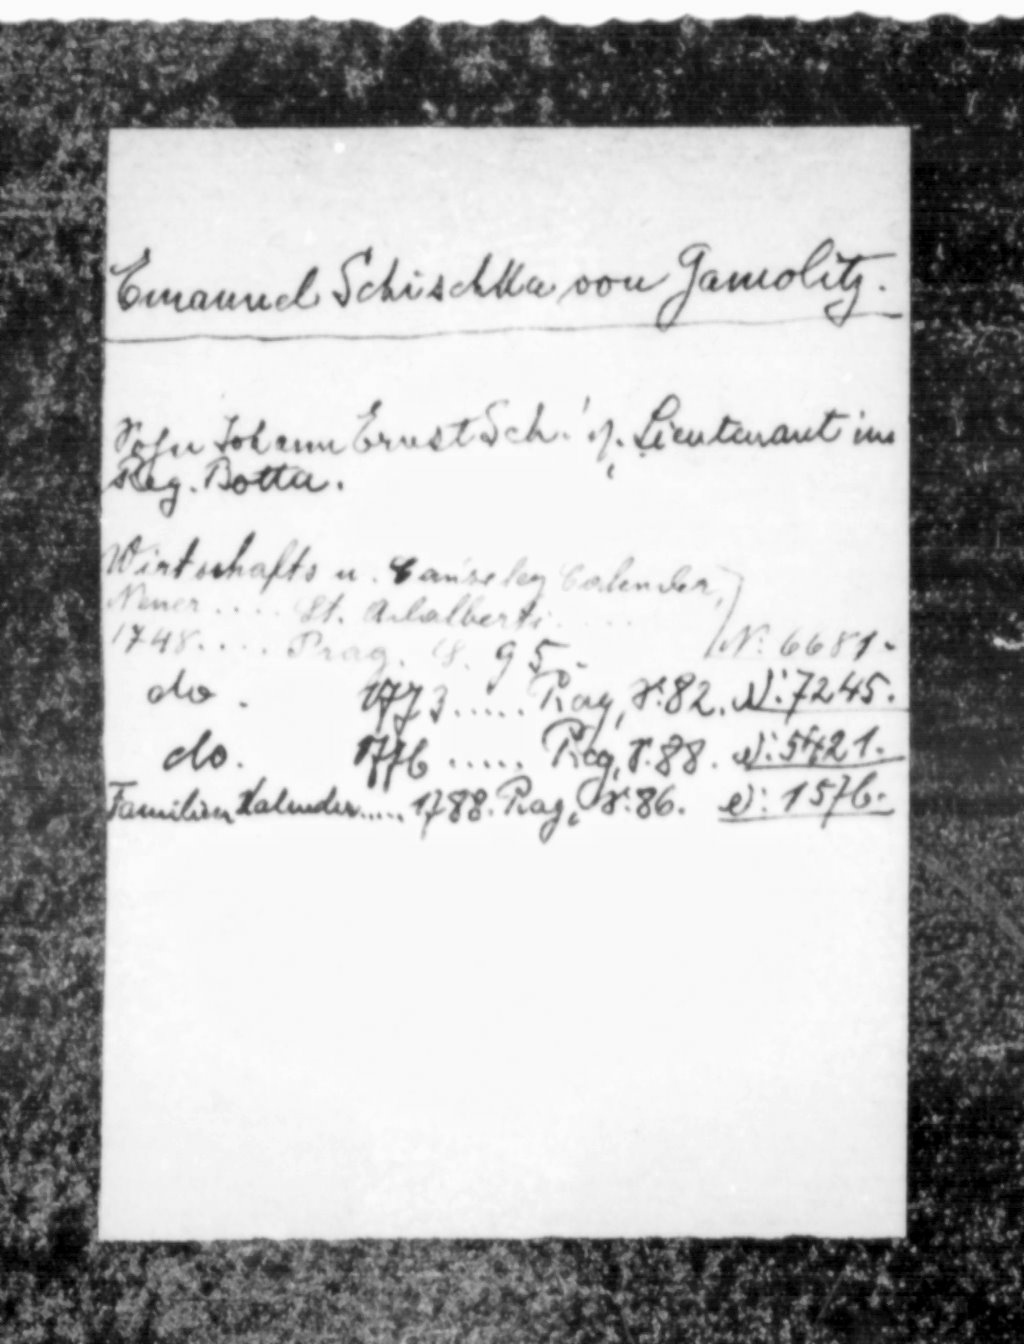 Emanuel Schischka von Gamolitz.
Sohn Johann Ernst Sch. Lieutenant im
Reg. Botta.
Wirtschafts u. Canzeley Calender,
Neuer .... St. Adalberti .....
1748..... Prag. S. 95. N: 6681.
do. 1773..... Prag, S. 82. N: 7245.
do. 1776 ..... Prag, S. 88. N: 5421.
Familien Kalender..... 1788. Prag, S. 86. N: 1576.